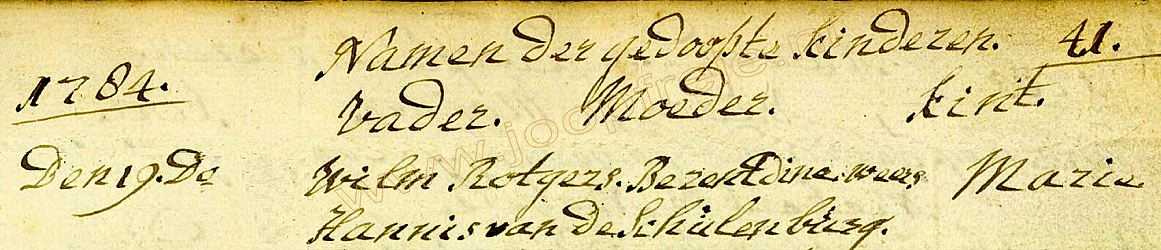 Namen der gedoopte kinderen. 41.
1784.
Vader. Moeder. kint.
Den 19. De Wilm Rotgers. Berentdine wees Marie
Hannis van de Schulenburg.